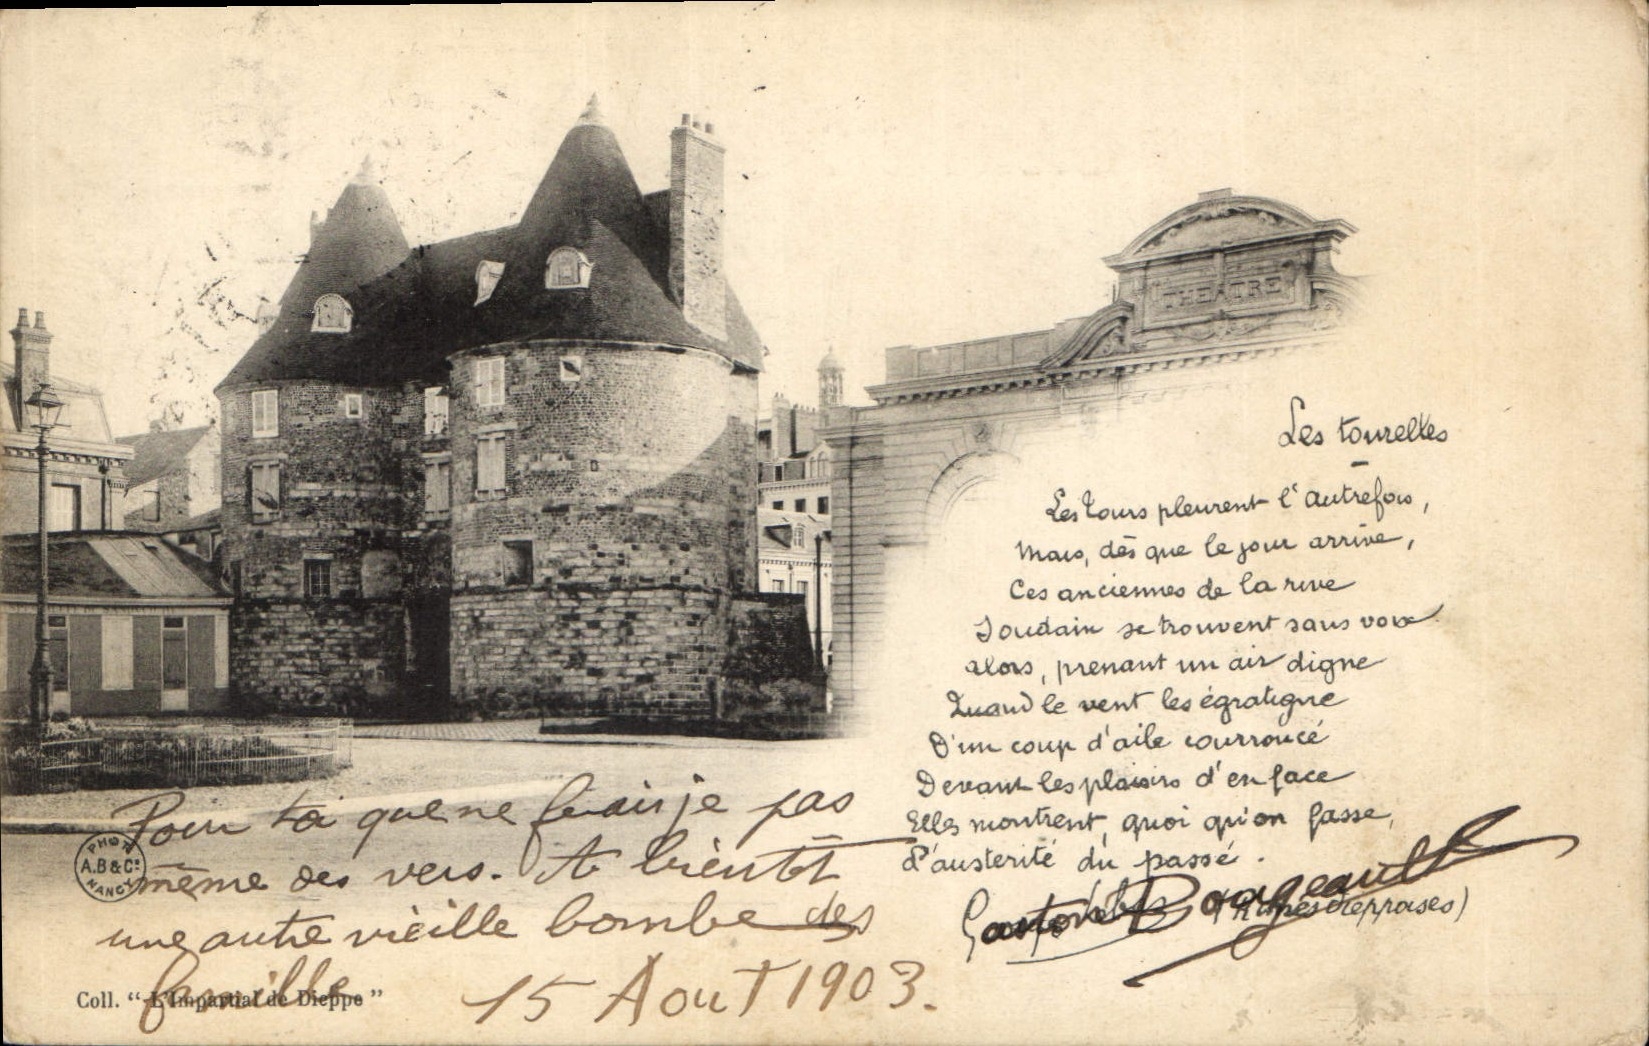 THEATRE
Les tourelles
Les Tours pleurent l'autrefois,
Mais, dès que le jour arrive,
Ces anciennes de la rive
Soudain se trouvent sans voix
Alors, prenant un air digne
Quand le vent les égratigne
D'un coup d'aile courroucé
Devant les plaisirs d'en face
Elles montrent, quoi qu'on fasse,
L'austérité du passé.
Gaston Bourgeault
(Rimes Dieppoises)
Pour toi que ne ferais je pas
même des vers. A bientôt
une autre vieille bombe des
famille
15 Aout 1903.
PHOT
A.B & Cie
NANCY
Coll. "L'Impartial de Dieppe"